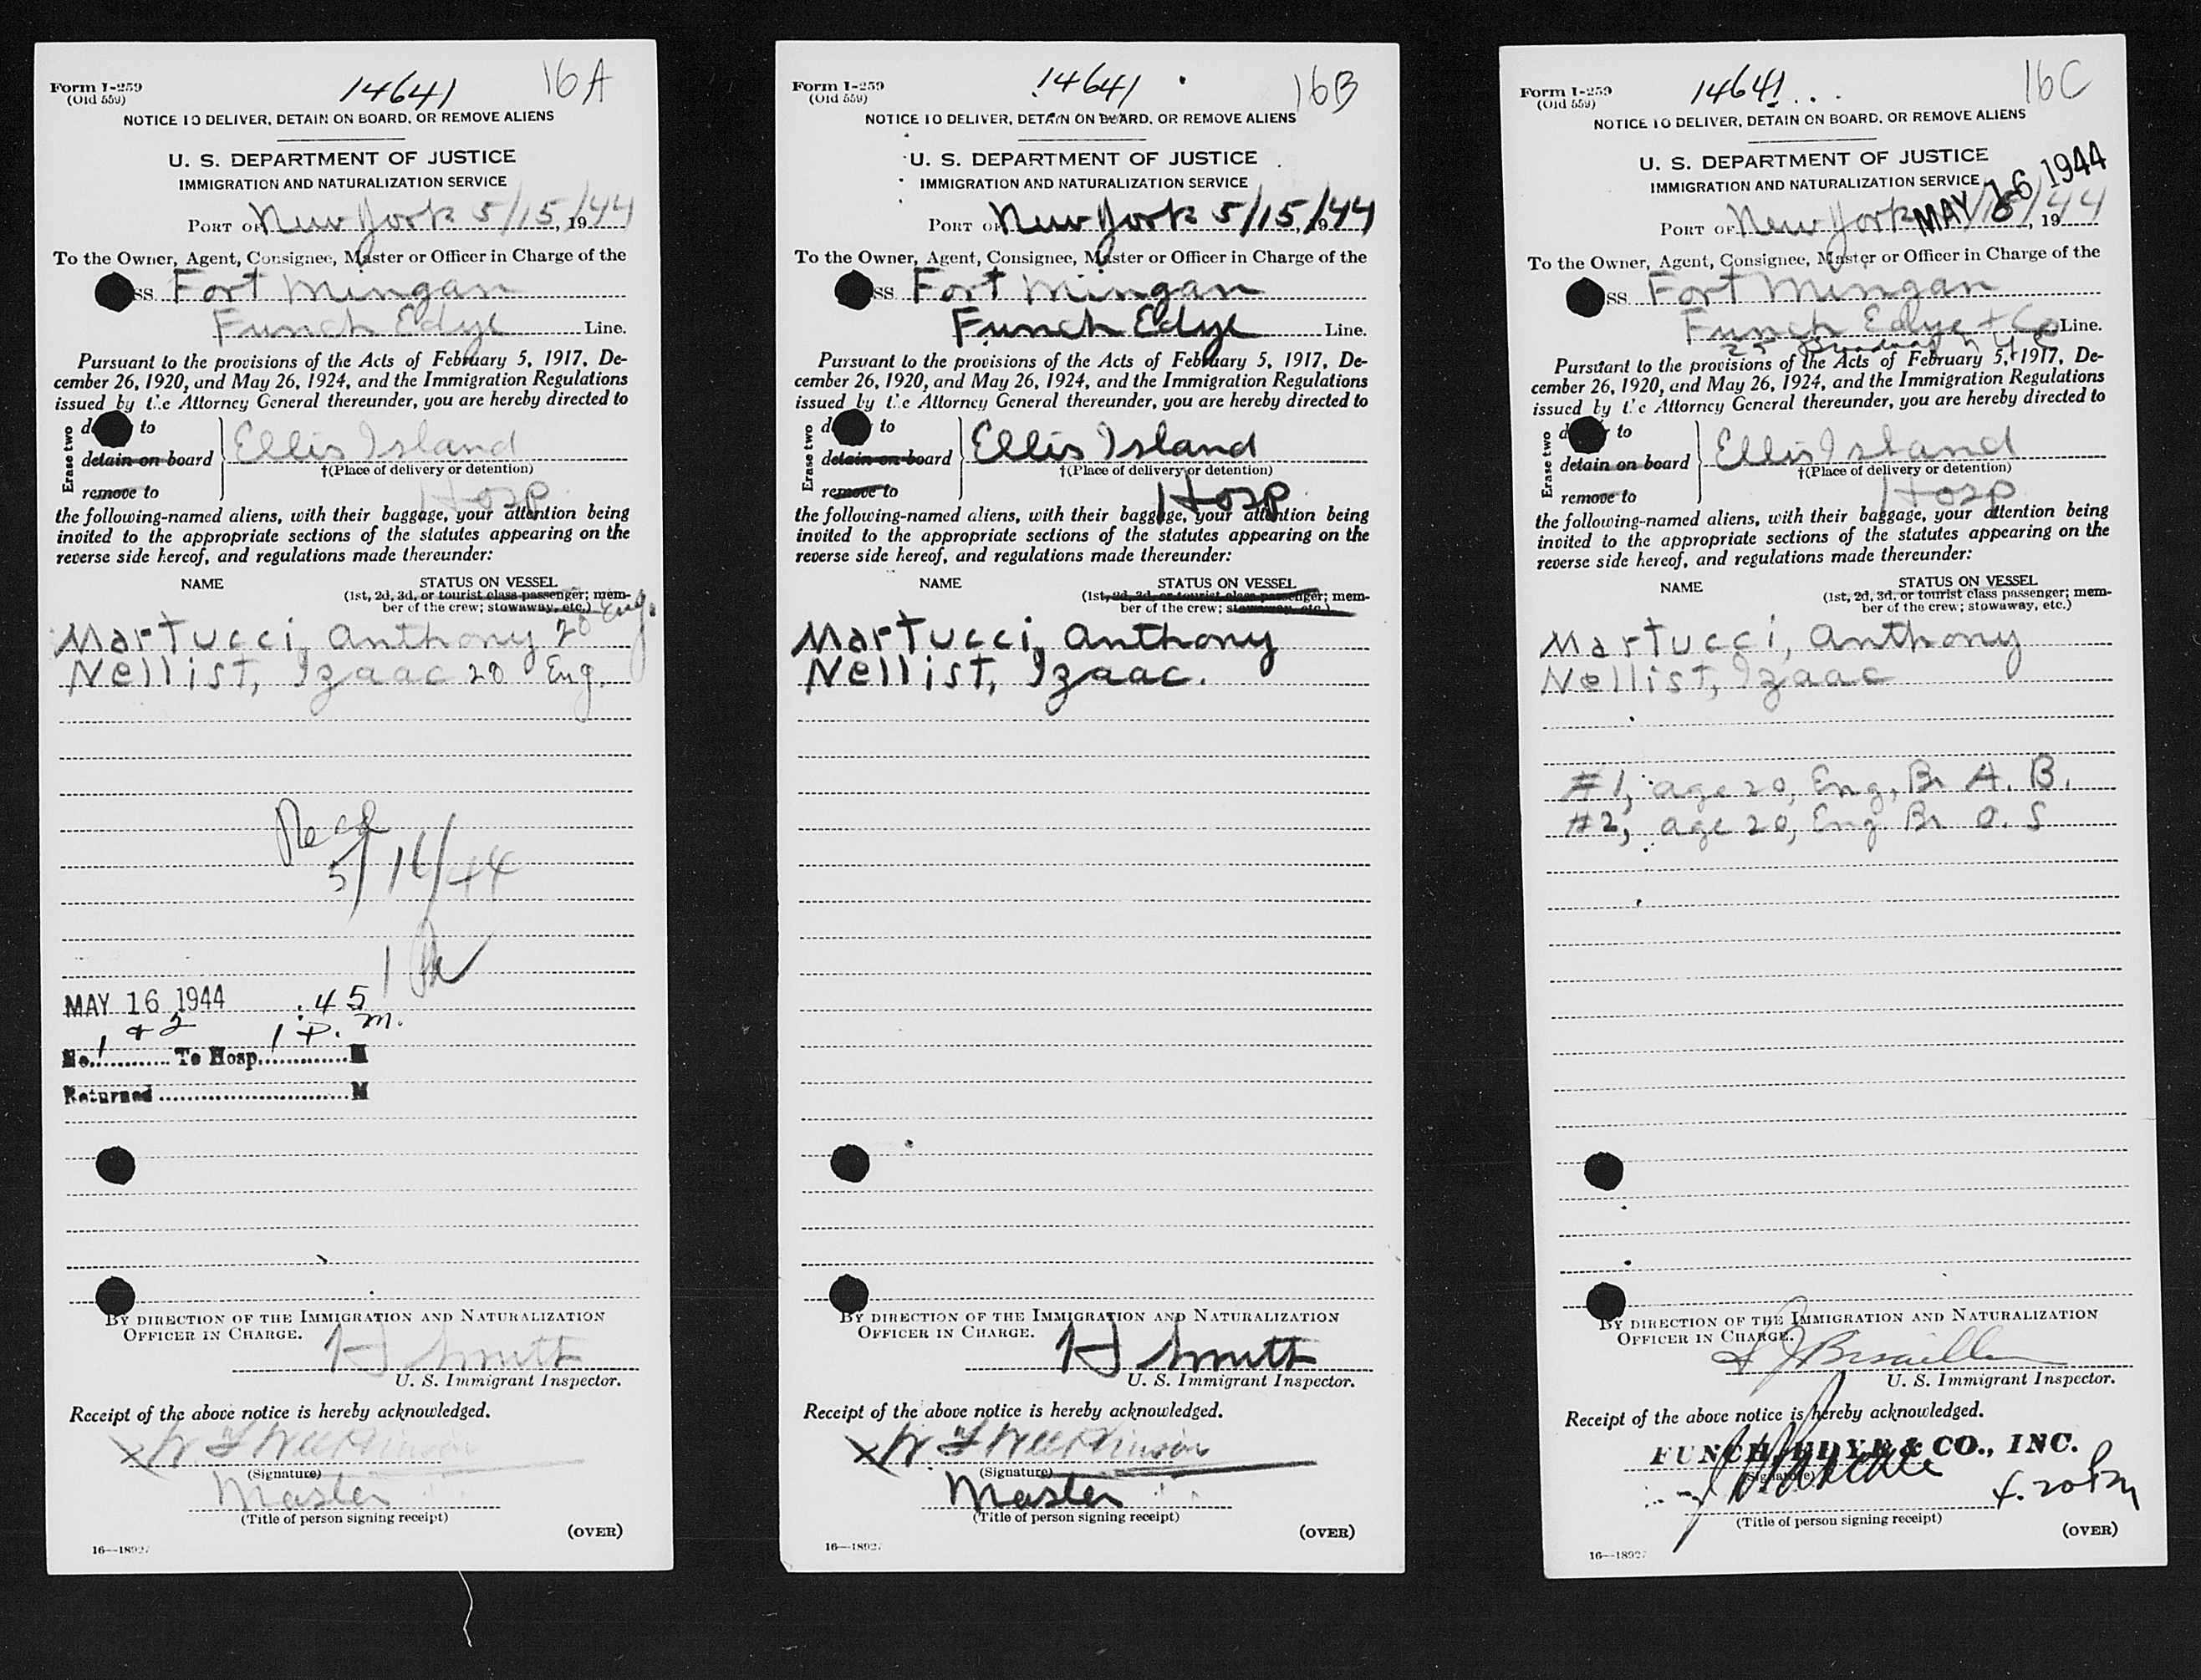 Form I-259
(Old 559)
14641
16A
NOTICE TO DELIVER, DETAIN ON BOARD, OR REMOVE ALIENS
U. S. DEPARTMENT OF JUSTICE
IMMIGRATION AND NATURALIZATION SERVICE
PORT OF New York 5/15, 1944
To the Owner, Agent, Consignee, Master or Officer in Charge of the
SS. Fort Mingan
Funch Edye Line.
Pursuant to the provisions of the Acts of February 5, 1917, De-
cember 26, 1920, and May 26, 1924, and the Immigration Regulations
issued by the Attorney General thereunder, you are hereby directed to
Erase two
d to
detain on board
remove to
Ellis Island
†(Place of delivery or detention)
Hosp
the following-named aliens, with their baggage, your attention being
invited to the appropriate sections of the statutes appearing on the
reverse side hereof, and regulations made thereunder:
NAME
STATUS ON VESSEL
(1st, 2d, 3d, or tourist class passenger; mem-
ber of the crew; stowaway, etc.)
Martucci, Anthony 20 Eng.
Nellist, Izaac 20 Eng.
Recd
5/16/44
MAY 16 1944 :45
1 & 2 1 P. M.
No. To Hosp. M
Returned M
BY DIRECTION OF THE IMMIGRATION AND NATURALIZATION
OFFICER IN CHARGE.
H Smith
U. S. Immigrant Inspector.
Receipt of the above notice is hereby acknowledged.
(Signature)
Master
(Title of person signing receipt)
(OVER)
16—18927
Form I-259
(Old 559)
14641
16B
NOTICE TO DELIVER, DETAIN ON BOARD, OR REMOVE ALIENS
U. S. DEPARTMENT OF JUSTICE
IMMIGRATION AND NATURALIZATION SERVICE
PORT OF New York 5/15, 1944
To the Owner, Agent, Consignee, Master or Officer in Charge of the
SS Fort Mingan
Funch Edye Line.
Pursuant to the provisions of the Acts of February 5, 1917, De-
cember 26, 1920, and May 26, 1924, and the Immigration Regulations
issued by the Attorney General thereunder, you are hereby directed to
Erase two
d to
detain on board
remove to
Ellis Island
†(Place of delivery or detention)
Hosp
the following-named aliens, with their baggage, your attention being
invited to the appropriate sections of the statutes appearing on the
reverse side hereof, and regulations made thereunder:
NAME
STATUS ON VESSEL
(1st, 2d, 3d, or tourist class passenger; mem-
ber of the crew; stowaway, etc.)
Martucci, Anthony
Nellist, Izaac.
BY DIRECTION OF THE IMMIGRATION AND NATURALIZATION
OFFICER IN CHARGE.
H Smith
U. S. Immigrant Inspector.
Receipt of the above notice is hereby acknowledged.
(Signature)
Master
(Title of person signing receipt)
(OVER)
16—18927
Form I-259
(Old 559)
14641
16C
NOTICE TO DELIVER, DETAIN ON BOARD, OR REMOVE ALIENS
U. S. DEPARTMENT OF JUSTICE
IMMIGRATION AND NATURALIZATION SERVICE
MAY 16 1944
PORT OF New York 1944
To the Owner, Agent, Consignee, Master or Officer in Charge of the
SS Fort Mingan
Funch Edye + Co Line.
25 Broadway N Y C
Pursuant to the provisions of the Acts of February 5, 1917, De-
cember 26, 1920, and May 26, 1924, and the Immigration Regulations
issued by the Attorney General thereunder, you are hereby directed to
Erase two
d to
detain on board
remove to
Ellis Island
†(Place of delivery or detention)
Hosp
the following-named aliens, with their baggage, your attention being
invited to the appropriate sections of the statutes appearing on the
reverse side hereof, and regulations made thereunder:
NAME
STATUS ON VESSEL
(1st, 2d, 3d, or tourist class passenger; mem-
ber of the crew; stowaway, etc.)
Martucci, Anthony
Nellist, Izaac
#1, age 20, Eng, Br A. B.
#2, age 20, Eng. Br O. S
BY DIRECTION OF THE IMMIGRATION AND NATURALIZATION
OFFICER IN CHARGE.
U. S. Immigrant Inspector.
Receipt of the above notice is hereby acknowledged.
FUNCH, EDYE & CO., INC.
(Signature)
4.20 PM
(Title of person signing receipt)
(OVER)
16—18927